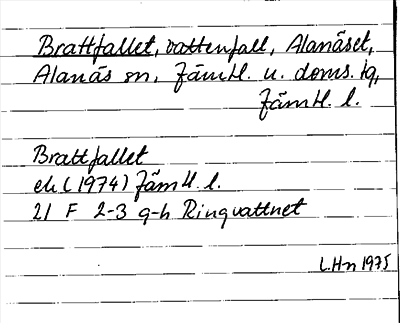 Brattfallet, vattenfall, Alanäset,
Alanäs sn, Jämtl. n. doms. tg,
Jämtl. l.
Brattfallet
ek (1974) Jämtl. l.
21 F 2-3 g-h Ringvattnet
L.Hn 1975